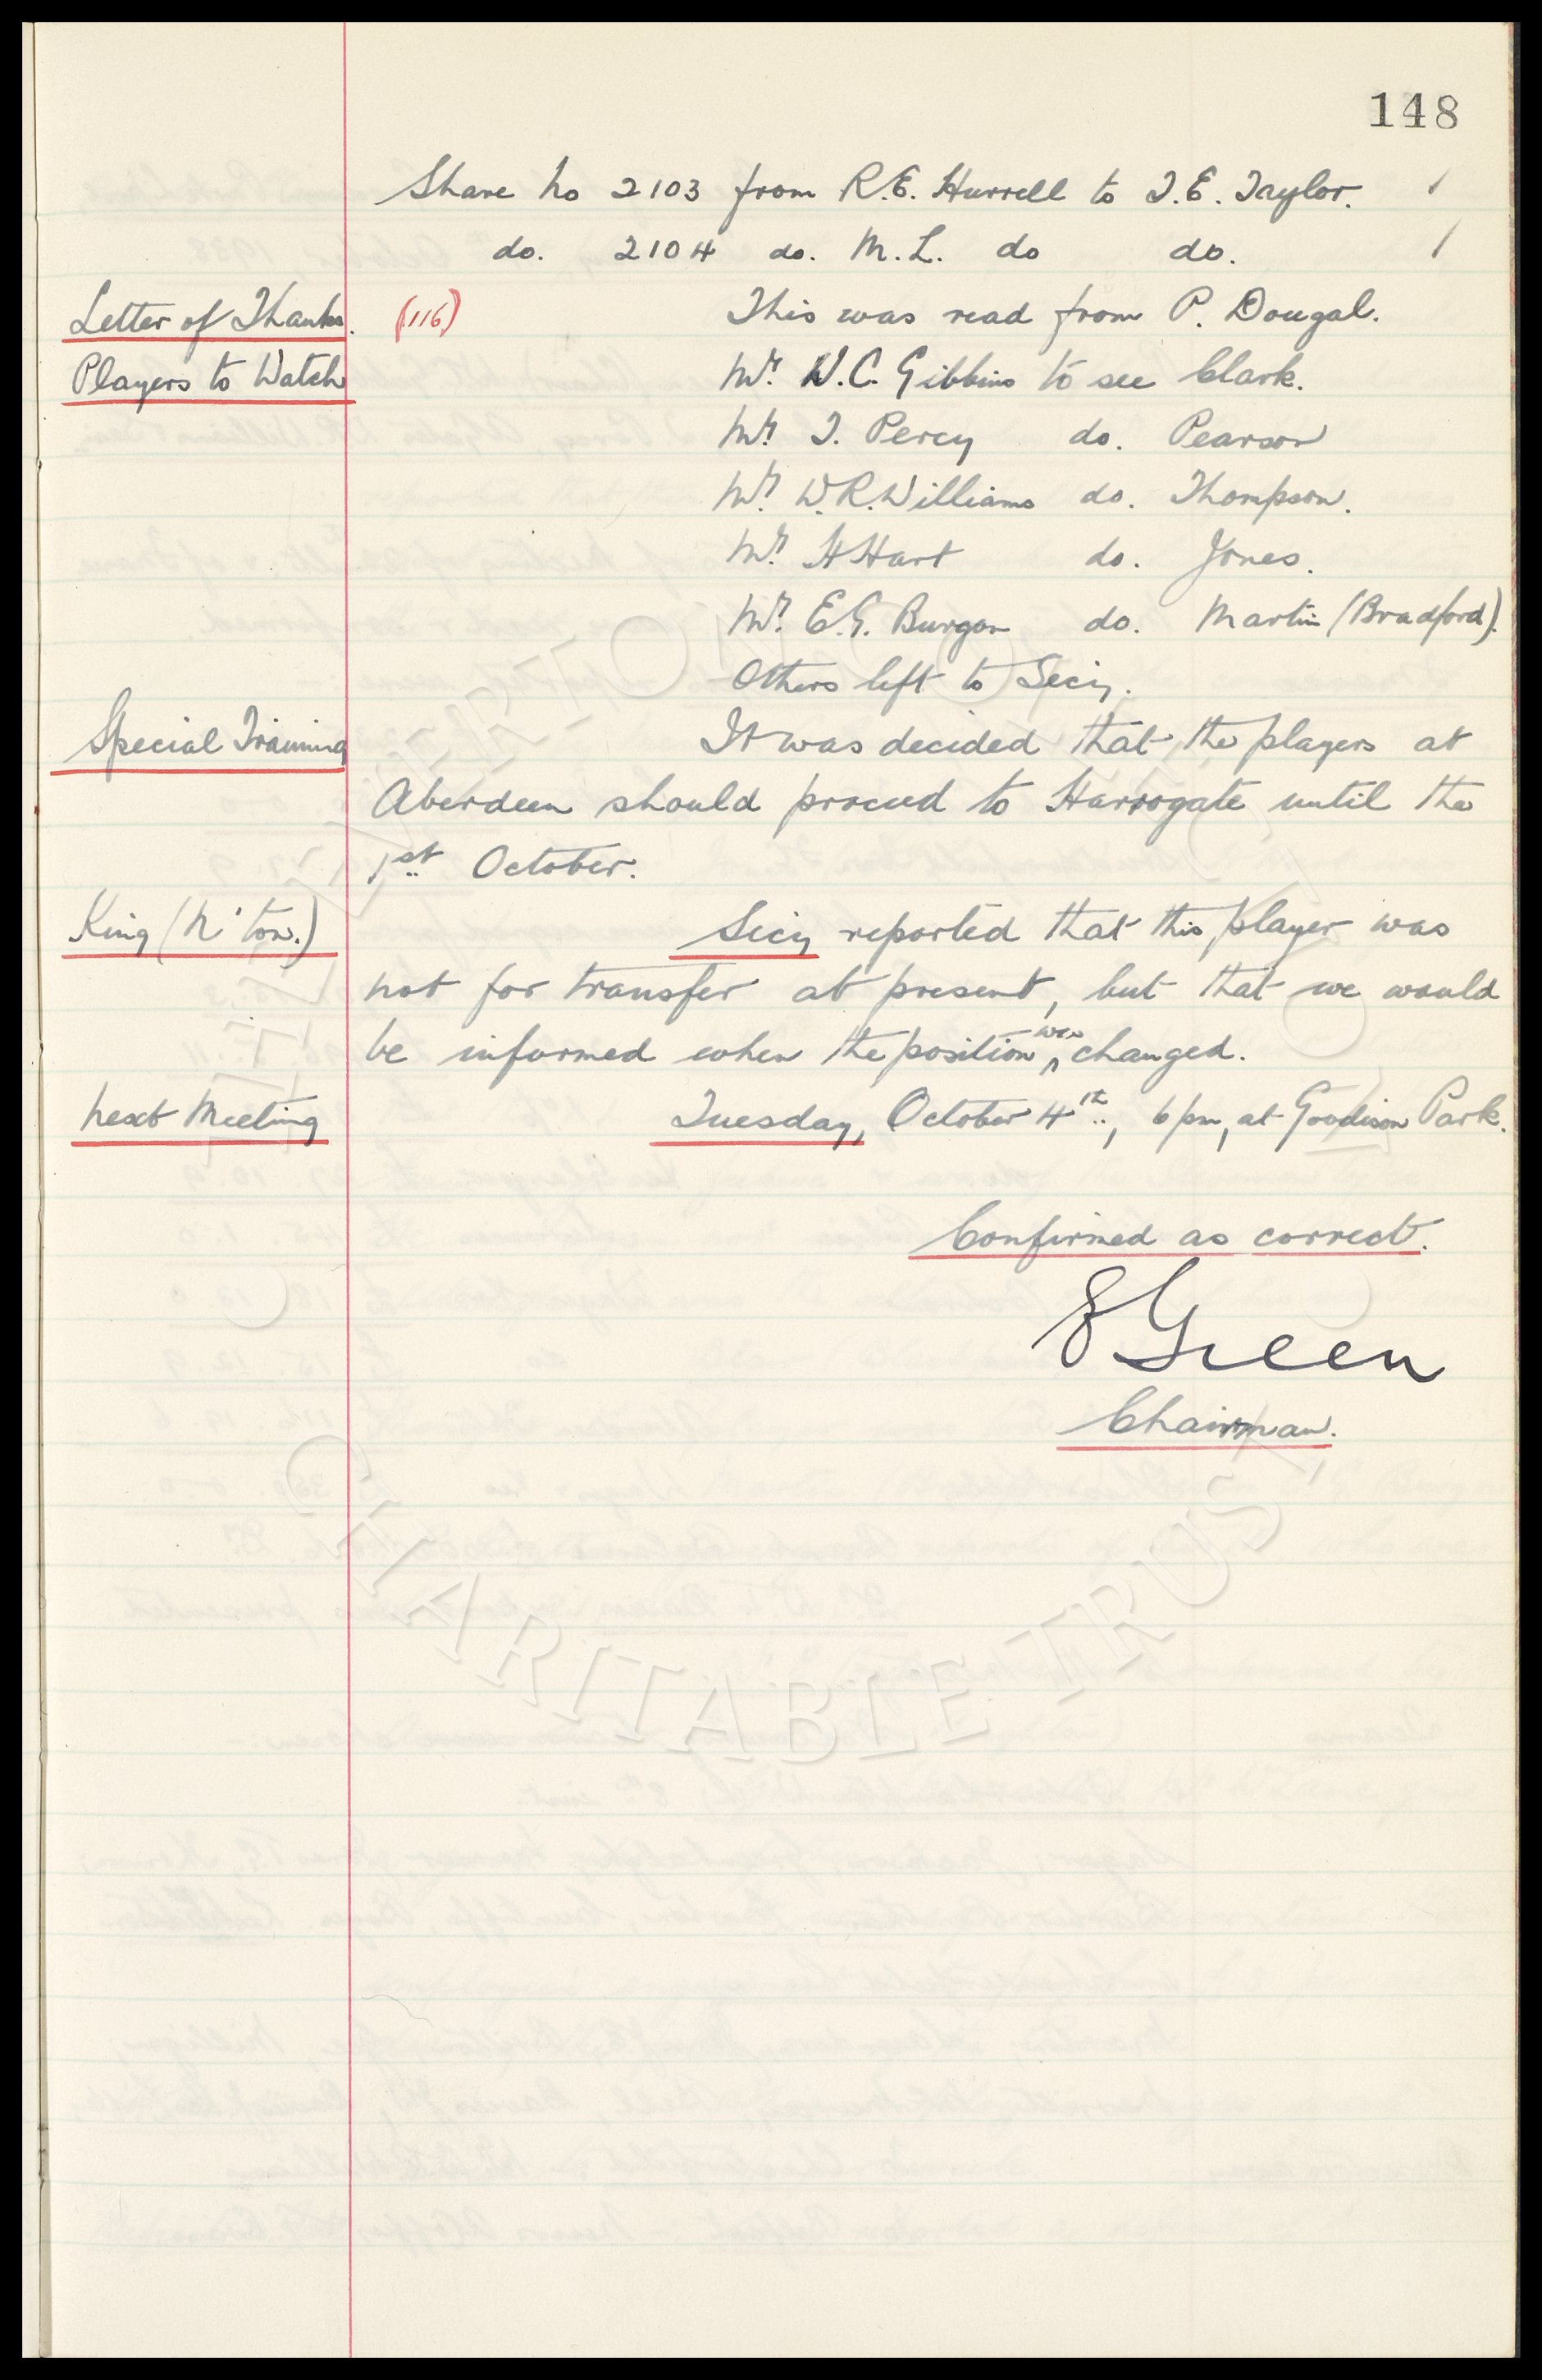 148
Share No 2103 from R.E. Hurrell to T.E. Taylor. 1
do. 2104 do. M.L. do do. 1
Letter of Thanks. (116) This was read from P. Dougal.
Players to Watch Mr. W.C. Gibbins to see Clark.
Mr. T. Percy do. Pearson
Mr. W.R. Williams do. Thompson.
Mr. H Hart do. Jones.
Mr. E.G. Burgon do. Martin (Bradford).
Others left to Secy.
Special Training It was decided that the players at
Aberdeen should proceed to Harrogate until the
1st October.
King (N'ton.) Secy reported that this player was
not for transfer at present, but that we would
be informed when the position was changed.
Next Meeting Tuesday, October 4th, 6pm, at Goodison Park.
Confirmed as correct.
Green
Chairman.
CHARITABLE TRUST